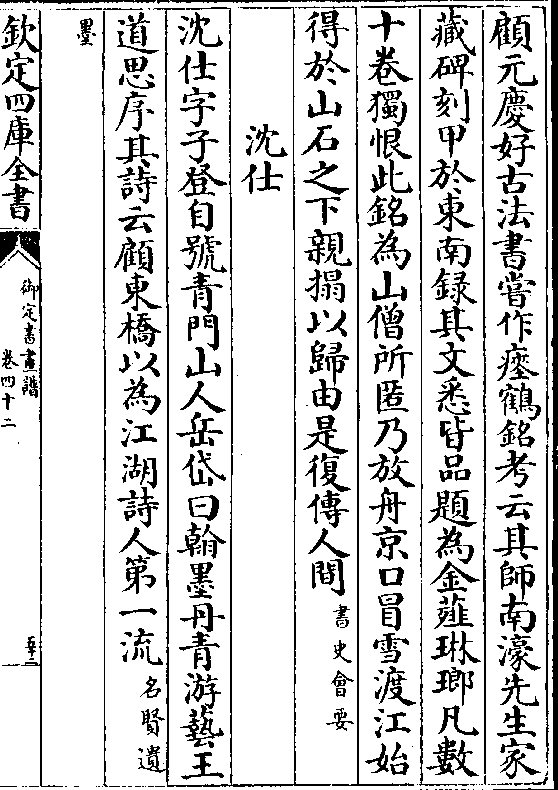 顧元慶好古法書嘗作瘞鶴銘考云其師南濠先生家
藏碑刻甲於東南録其文悉皆品題為金薤琳瑯凡數
十卷獨恨此銘為山僧所匿乃放舟京口冒雪渡江始
得於山石之下親搨以歸由是復傳人間書史會要
沈仕
沈仕字子登自號青門山人岳岱曰翰墨丹青游藝王
道思序其詩云顧東橋以為江湖詩人第一流名賢遺
墨
欽定四庫全書
御定書畫譜
卷四十二
五十二